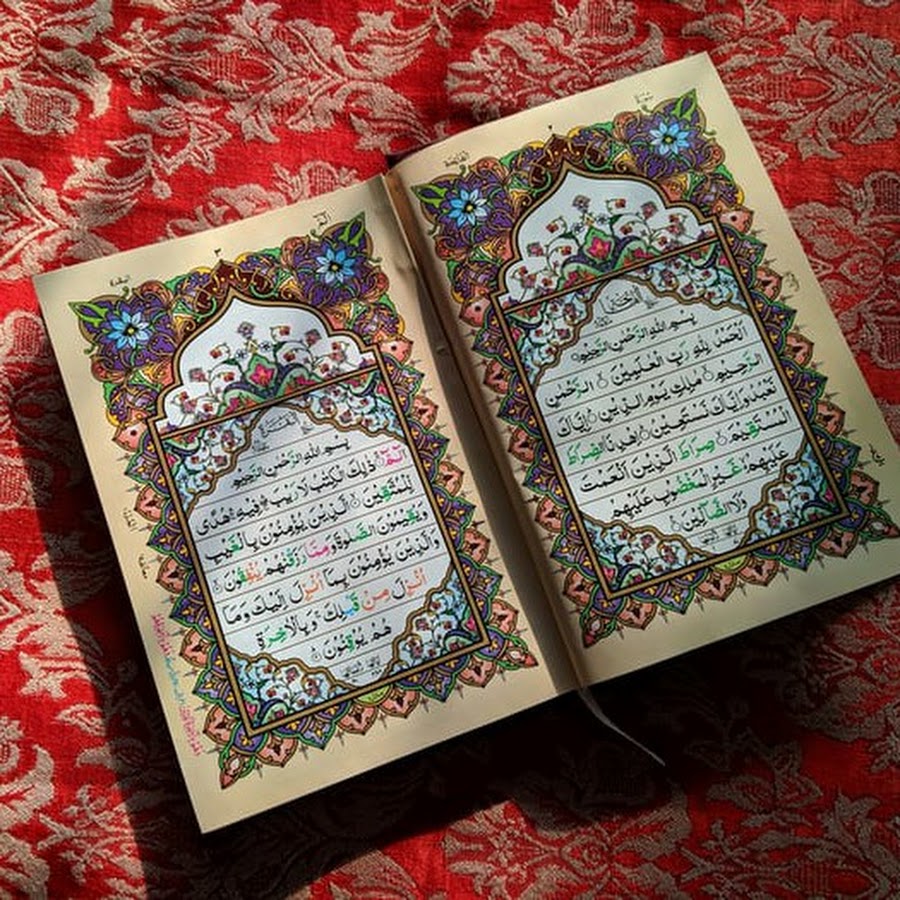 ٢
الفاتحة
بِسْمِ اللهِ الرَّحْمٰنِ الرَّحِيْمِ
اَلْحَمْدُ لِلّٰهِ رَبِّ الْعٰلَمِيْنَ ۙ الرَّحْمٰنِ
الرَّحِيْمِ ۙ مٰلِكِ يَوْمِ الدِّيْنِ ۗ اِيَّاكَ
نَعْبُدُ وَاِيَّاكَ نَسْتَعِيْنُ ۗ اِهْدِنَا الصِّرَاطَ
الْمُسْتَقِيْمَ ۙ صِرَاطَ الَّذِيْنَ اَنْعَمْتَ
عَلَيْهِمْ ۙ غَيْرِ الْمَغْضُوْبِ عَلَيْهِمْ
وَلَا الضَّآلِّيْنَ
٣
البقرة
الٓمّٓ
بِسْمِ اللهِ الرَّحْمٰنِ الرَّحِيْمِ
الٓمّٓ ۚ ذٰلِكَ الْكِتٰبُ لَا رَيْبَ ۛ فِيْهِ ۛ هُدًى
لِّلْمُتَّقِيْنَ ۙ الَّذِيْنَ يُؤْمِنُوْنَ بِالْغَيْبِ
وَيُقِيْمُوْنَ الصَّلٰوةَ وَمِمَّا رَزَقْنٰهُمْ يُنْفِقُوْنَ ۙ
وَالَّذِيْنَ يُؤْمِنُوْنَ بِمَا اُنْزِلَ اِلَيْكَ وَمَا
اُنْزِلَ مِنْ قَبْلِكَ ۚ وَبِالْاٰخِرَةِ
هُمْ يُوْقِنُوْنَ